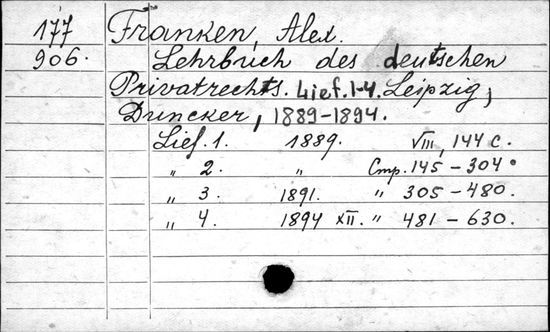 177 Franken, Alex.
906. Lehrbuch des deutschen
Privatrechts. Lief. 1-4. Leipzig,
Duncker, 1889-1894.
Lief. 1. 1889. VIII, 144 c.
„ 2. „ Cmp. 145 - 304.
„ 3. 1891. „ 305 - 480.
„ 4. 1894 XII. „ 481 - 630.